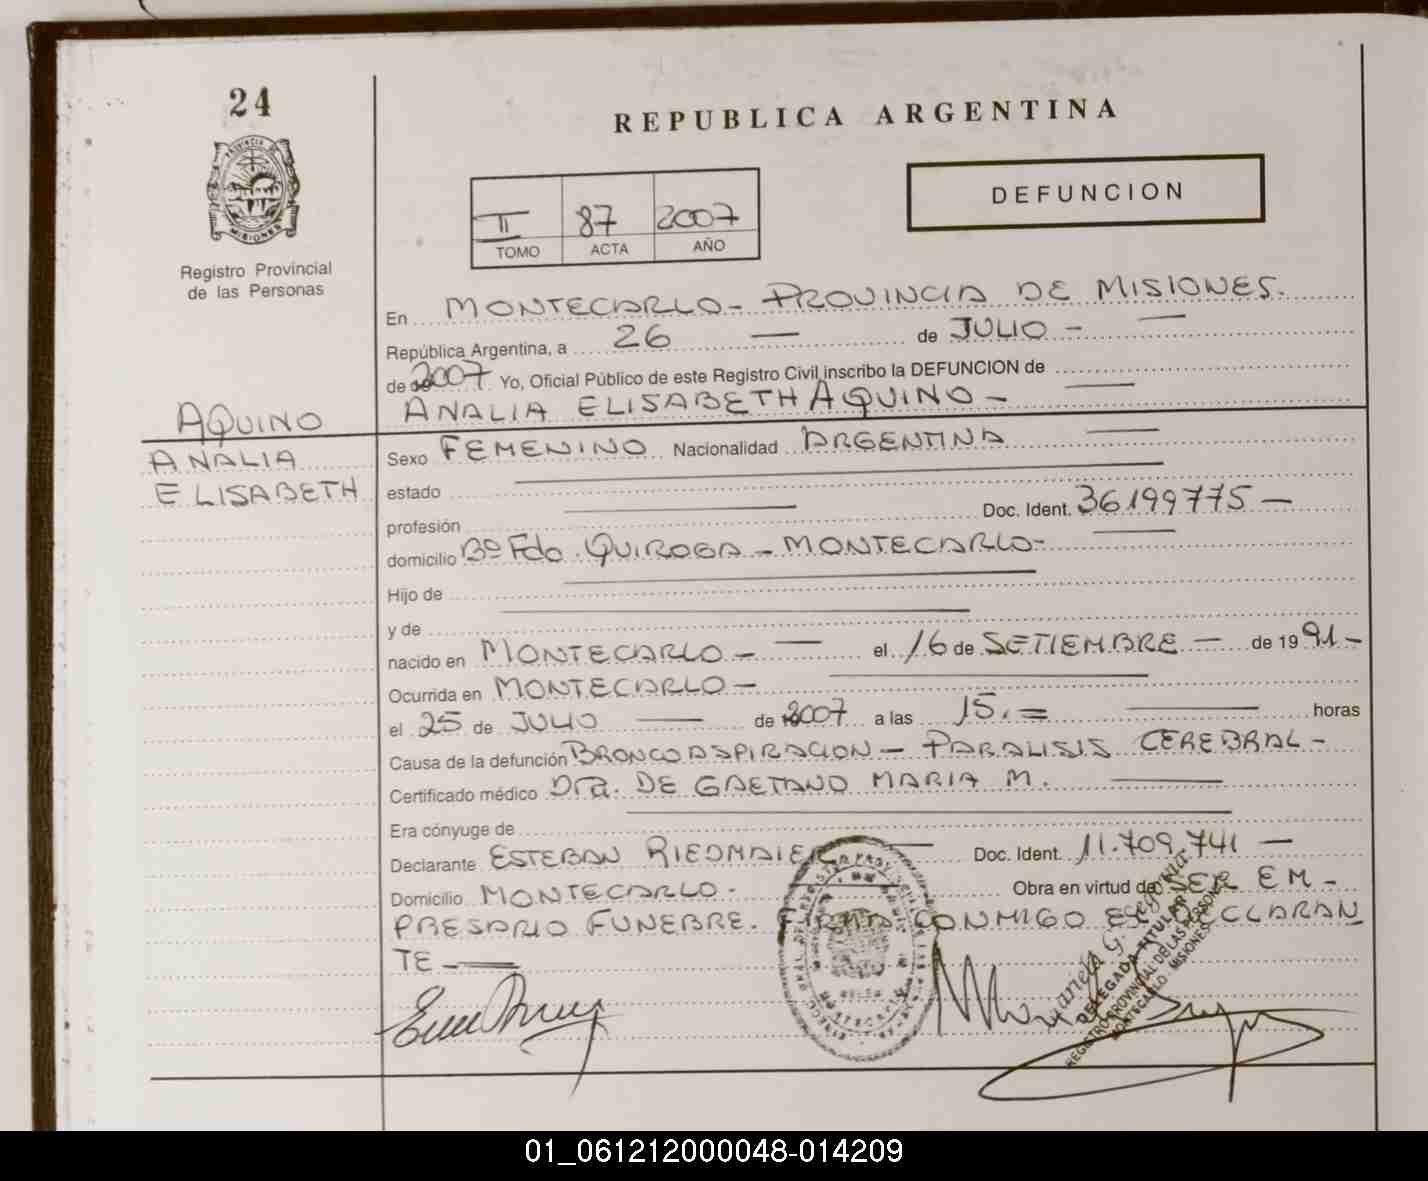 24
REPUBLICA ARGENTINA
PROVINCIA DE
MISIONES
Registro Provincial
de las Personas
DEFUNCION
II 87 2007
TOMO ACTA AÑO
En MONTECARLO - PROVINCIA DE MISIONES.
República Argentina, a 26 — de JULIO - —
de 2007 Yo, Oficial Público de este Registro Civil inscribo la DEFUNCION de
ANALIA ELISABETH AQUINO -
AQUINO
ANALIA
ELISABETH
Sexo FEMENINO Nacionalidad ARGENTINA
estado
profesión Doc. Ident. 36199775 —
domicilio Bº Fdo. QUIROGA - MONTECARLO-
Hijo de
y de
nacido en MONTECARLO - — el 16 de SETIEMBRE - de 1991 -
Ocurrida en MONTECARLO -
el 25 de JULIO — de 2007 a las 15.= horas
Causa de la defunción BRONCOASPIRACION - PARALISIS CEREBRAL -
Certificado médico Dra. DE GAETANO MARIA M.
Era cónyuge de
Declarante ESTEBAN RIEDMAIER — Doc. Ident. 11.709.741 —
Domicilio MONTECARLO - Obra en virtud de SER EM-
PRESARIO FUNEBRE. FIRMA CONMIGO EL DECLARAN
TE -
DELEGADA TITULAR
REGISTRO PROVINCIAL DE LAS PERSONAS
MONTECARLO MISIONES
01_061212000048-014209